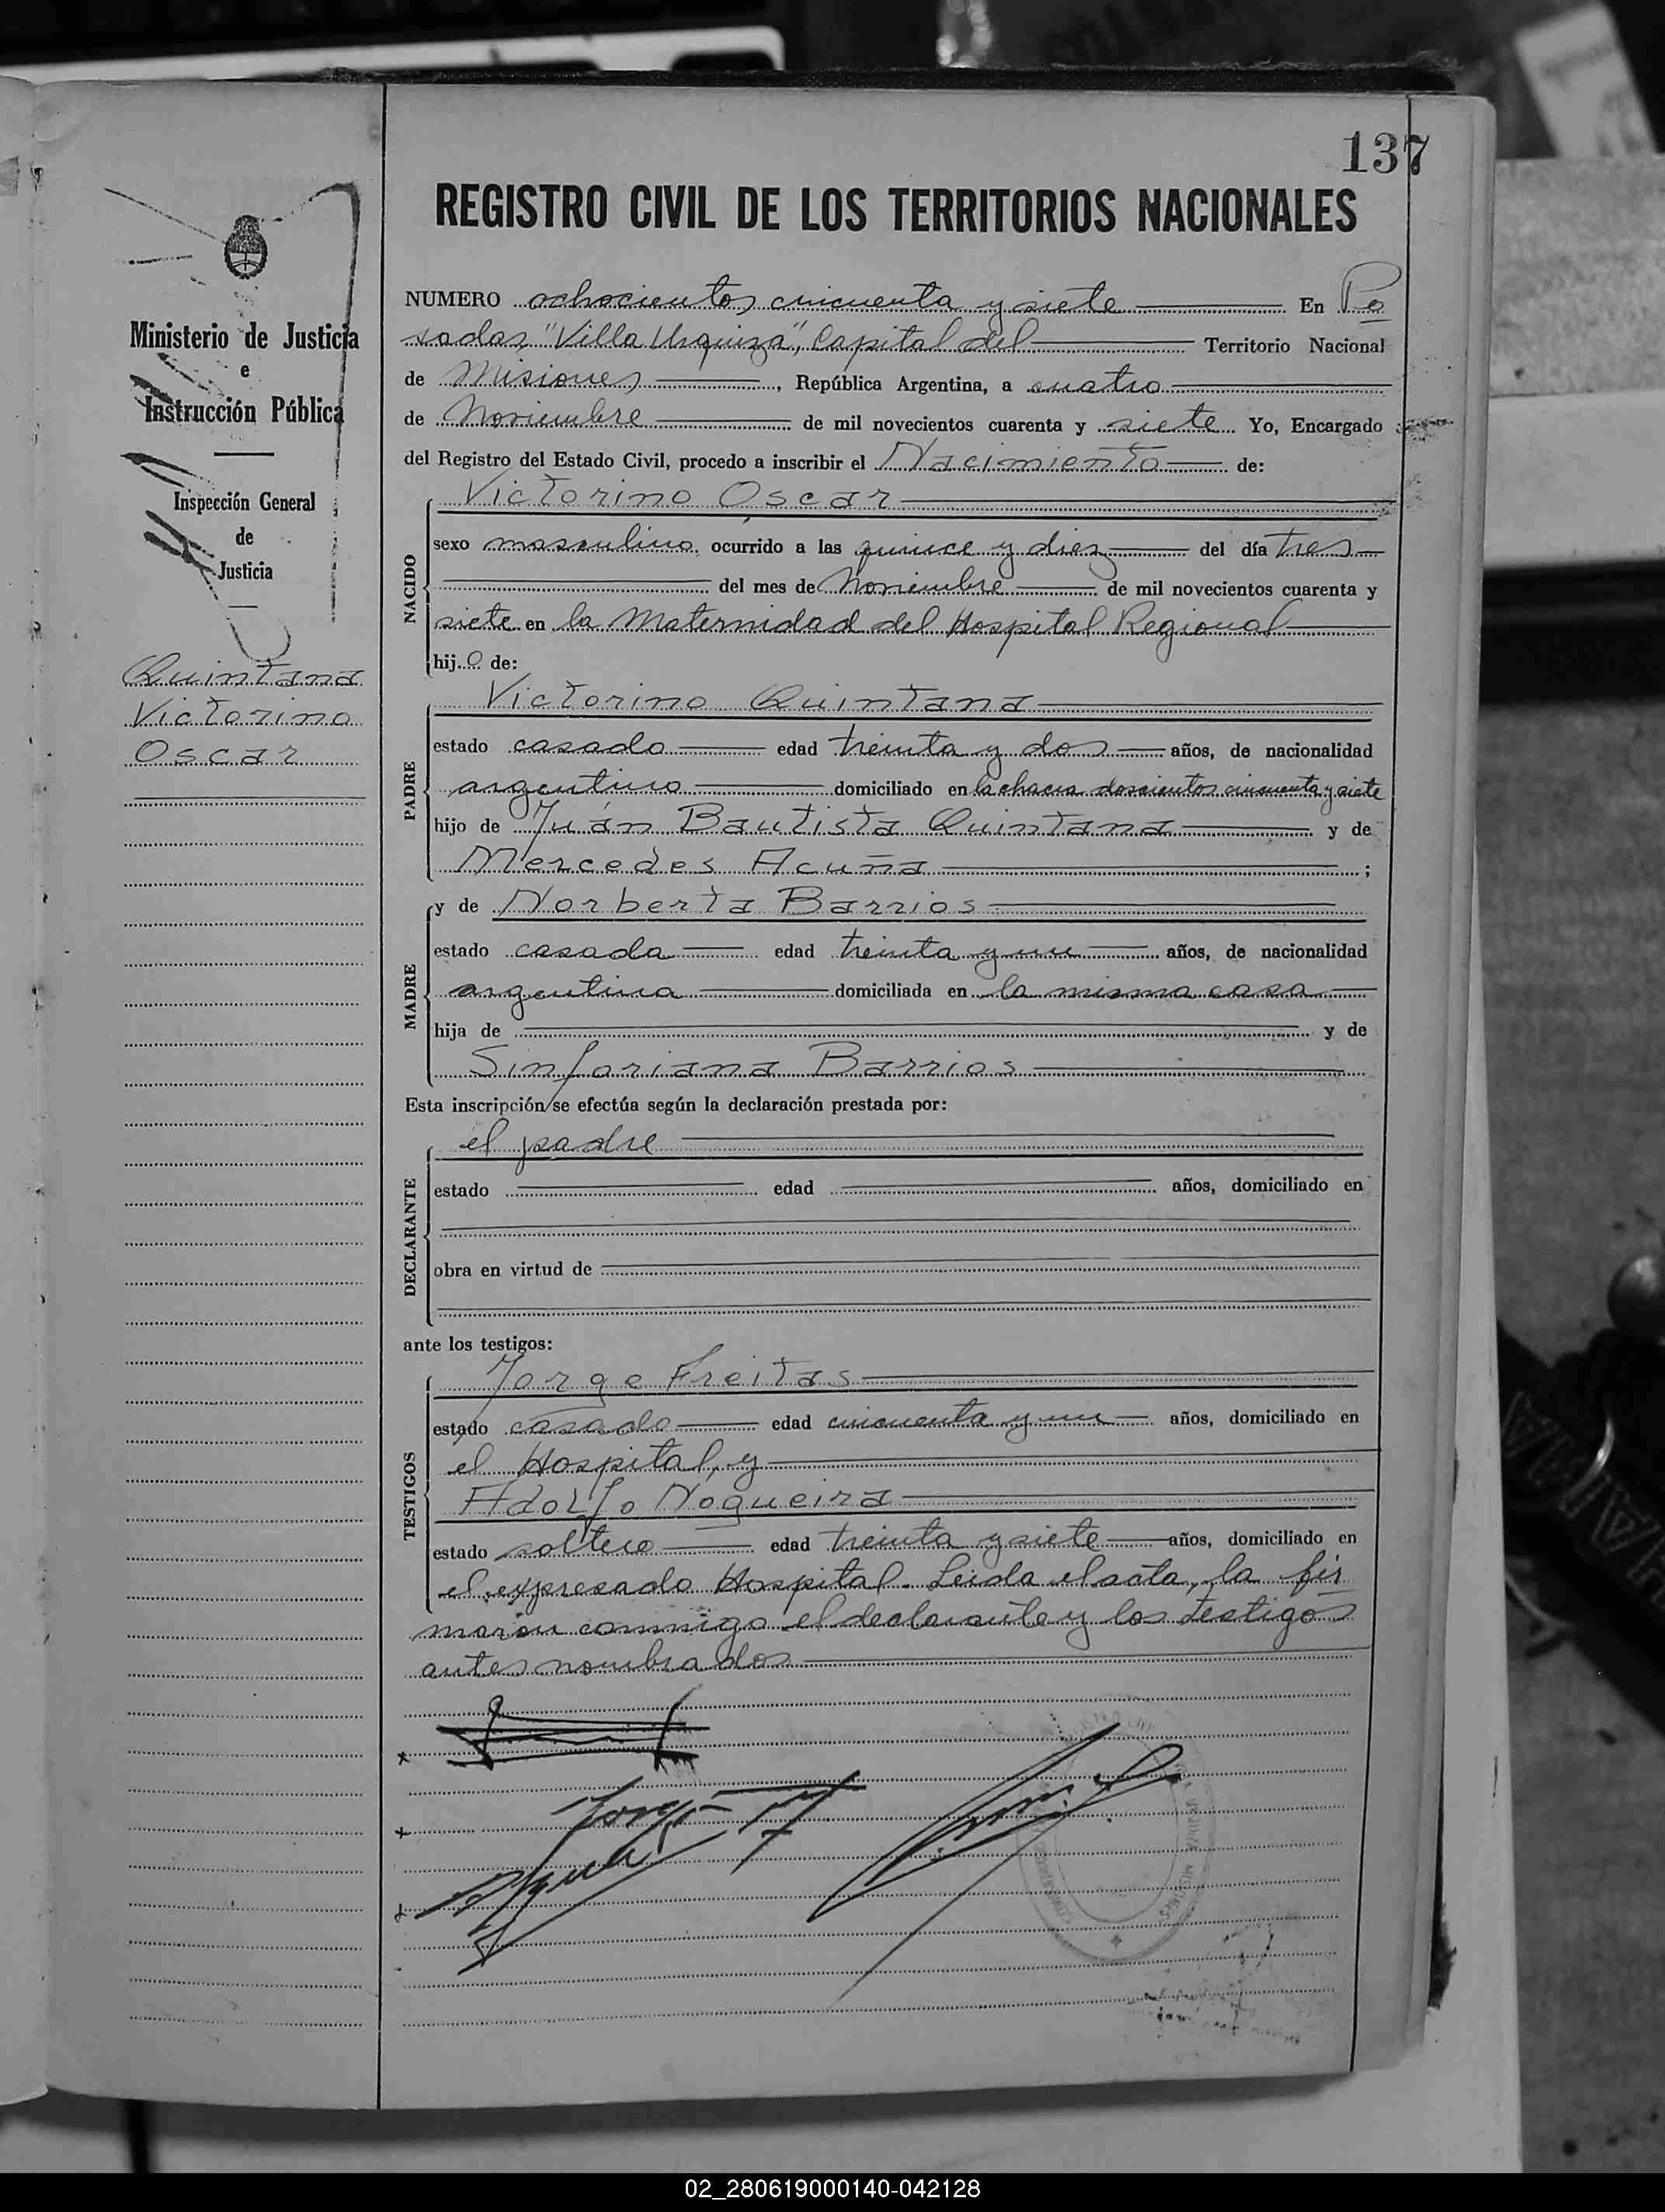 137
REGISTRO CIVIL DE LOS TERRITORIOS NACIONALES
Ministerio de Justicia
e
Instrucción Pública
Inspección General
de
Justicia
Quintana
Victorino
Oscar
NUMERO ochocientos cincuenta y siete En Po
sadas "Villa Urquiza", Capital del Territorio Nacional
de Misiones, República Argentina, a cuatro
de Noviembre de mil novecientos cuarenta y siete Yo, Encargado
del Registro del Estado Civil, procedo a inscribir el Nacimiento de:
NACIDO
Victorino Oscar
sexo masculino ocurrido a las quince y diez del día tres
del mes de Noviembre de mil novecientos cuarenta y
siete en la Maternidad del Hospital Regional
hijo de:
PADRE
Victorino Quintana
estado casado edad treinta y dos años, de nacionalidad
argentino domiciliado en la chacra doscientos cincuenta y siete
hijo de Juán Bautista Quintana y de
Mercedes Acuña ;
MADRE
y de Norberta Barrios
estado casada edad treinta y un años, de nacionalidad
argentina domiciliada en la misma casa
hija de y de
Sinforiana Barrios
Esta inscripción se efectúa según la declaración prestada por:
DECLARANTE
el padre
estado edad años, domiciliado en
obra en virtud de
ante los testigos:
TESTIGOS
Jorge Freitas
estado casado edad cincuenta y un años, domiciliado en
el Hospital, y
Adolfo Nogueira
estado soltero edad treinta y siete años, domiciliado en
el expresado Hospital. Leida el acta, la fir
maron conmigo el declarante y los testigos
antes nombrados
02_280619000140-042128